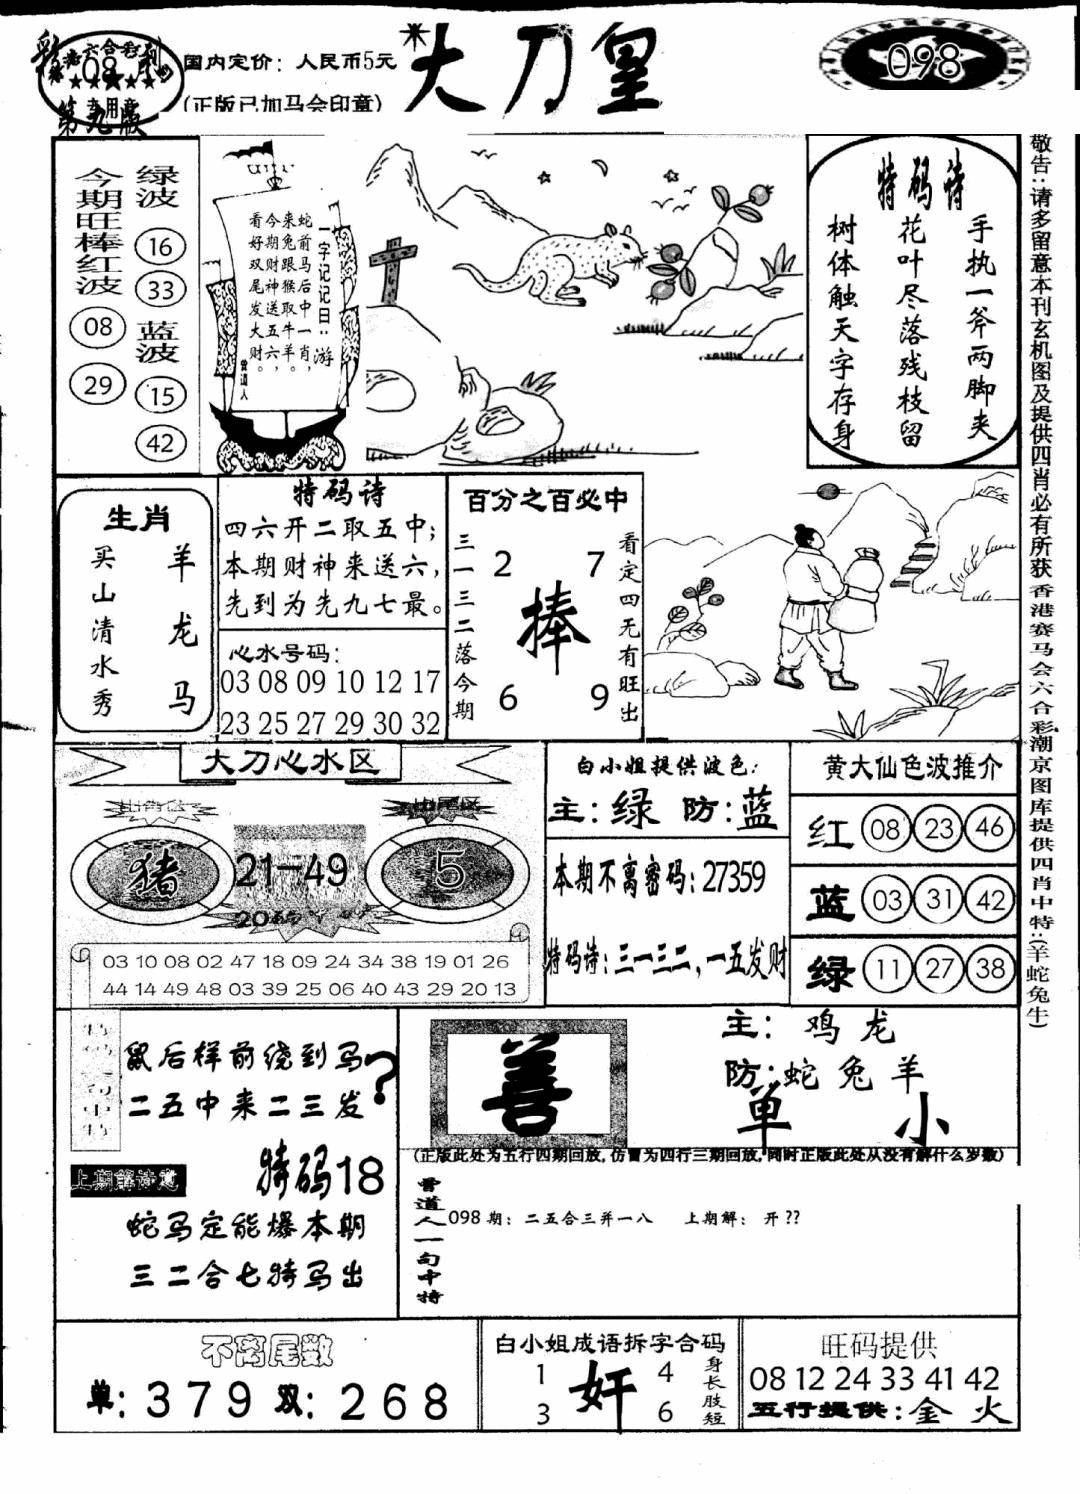 大刀皇
098
国内定价：人民币5元
(正版已加马会印章)
彩
六合彩
08
专用章
第九版
今期旺棒红波
08
29
绿波
16
33
蓝波
15
42
一字记记日：游
蛇前马后中一肖，
来兔跟猴取牛羊。
今期财神送五六，
看好双尾发大财。
曾道人
特码诗
手执一斧两脚夹
花叶尽落残枝留
树体触天字存身
敬告：请多留意本刊玄机图及提供四肖必有所获香港赛马会六合彩潮京图库提供四肖中特：(羊蛇兔牛)
生肖
羊龙马
买山清水秀
特码诗
四六开二取五中；
本期财神来送六，
先到为先九七最。
心水号码：
03 08 09 10 12 17
23 25 27 29 30 32
百分之百必中
看定四无有旺出
三一三二落今期
2 7
棒
6 9
大刀心水区
猪
21—49
5
03 10 08 02 47 18 09 24 34 38 19 01 26
44 14 49 48 03 39 25 06 40 43 29 20 13
白小姐提供波色：
主：绿 防：蓝
本期不离密码：27359
特码诗：三一三二，一五发财
黄大仙色波推介
红 08 23 46
蓝 03 31 42
绿 11 27 38
鼠后样前绕到马
二五中来二三发
?
特码18
上期解诗意
蛇马定能爆本期
三二合七特马出
善
主：鸡龙
防：蛇兔羊
单 小
(正版此处为五行四期回放，仿冒为四行三期回放，同时正版此处从没有解什么岁数)
曾道人一句中特
098期：二五合三并一八 上期解：开??
不离尾数
单：379 双：268
白小姐成语拆字合码
1 4
奸
3 6
身长肢短
旺码提供
08 12 24 33 41 42
五行提供：金 火